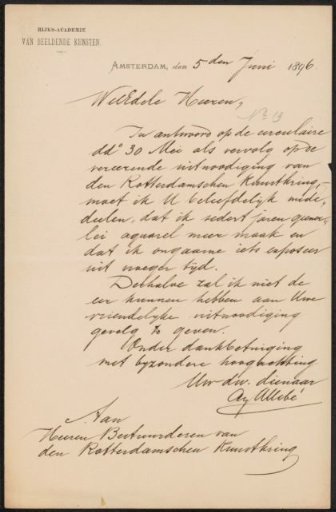 RIJKS-ACADEMIE
VAN BEELDENDE KUNSTEN.
AMSTERDAM, den 5 den Juni 1896
WelEdele Heeren,
In antwoord op de circulaire
dd° 30 Mei als vervolg op de
vereerende uitnoodiging van
den Rotterdamschen Kunstkring,
moet ik U beleefdelijk mede-
deelen, dat ik sedert jaren geener-
lei aquarel meer maak en
dat ik ongaarne iets exposeer
uit vroeger tijd.
Derhalve zal ik niet de
eer kunnen hebben aan Uwe
vriendelyke uitnoodiging
gevolg te geven.
Onder dankbetuiging
met byzondere hoogachting
Uw dw. dienaar
Allebé
Aan
Heeren Bestuurderen van
den Rotterdamschen Kunstkring